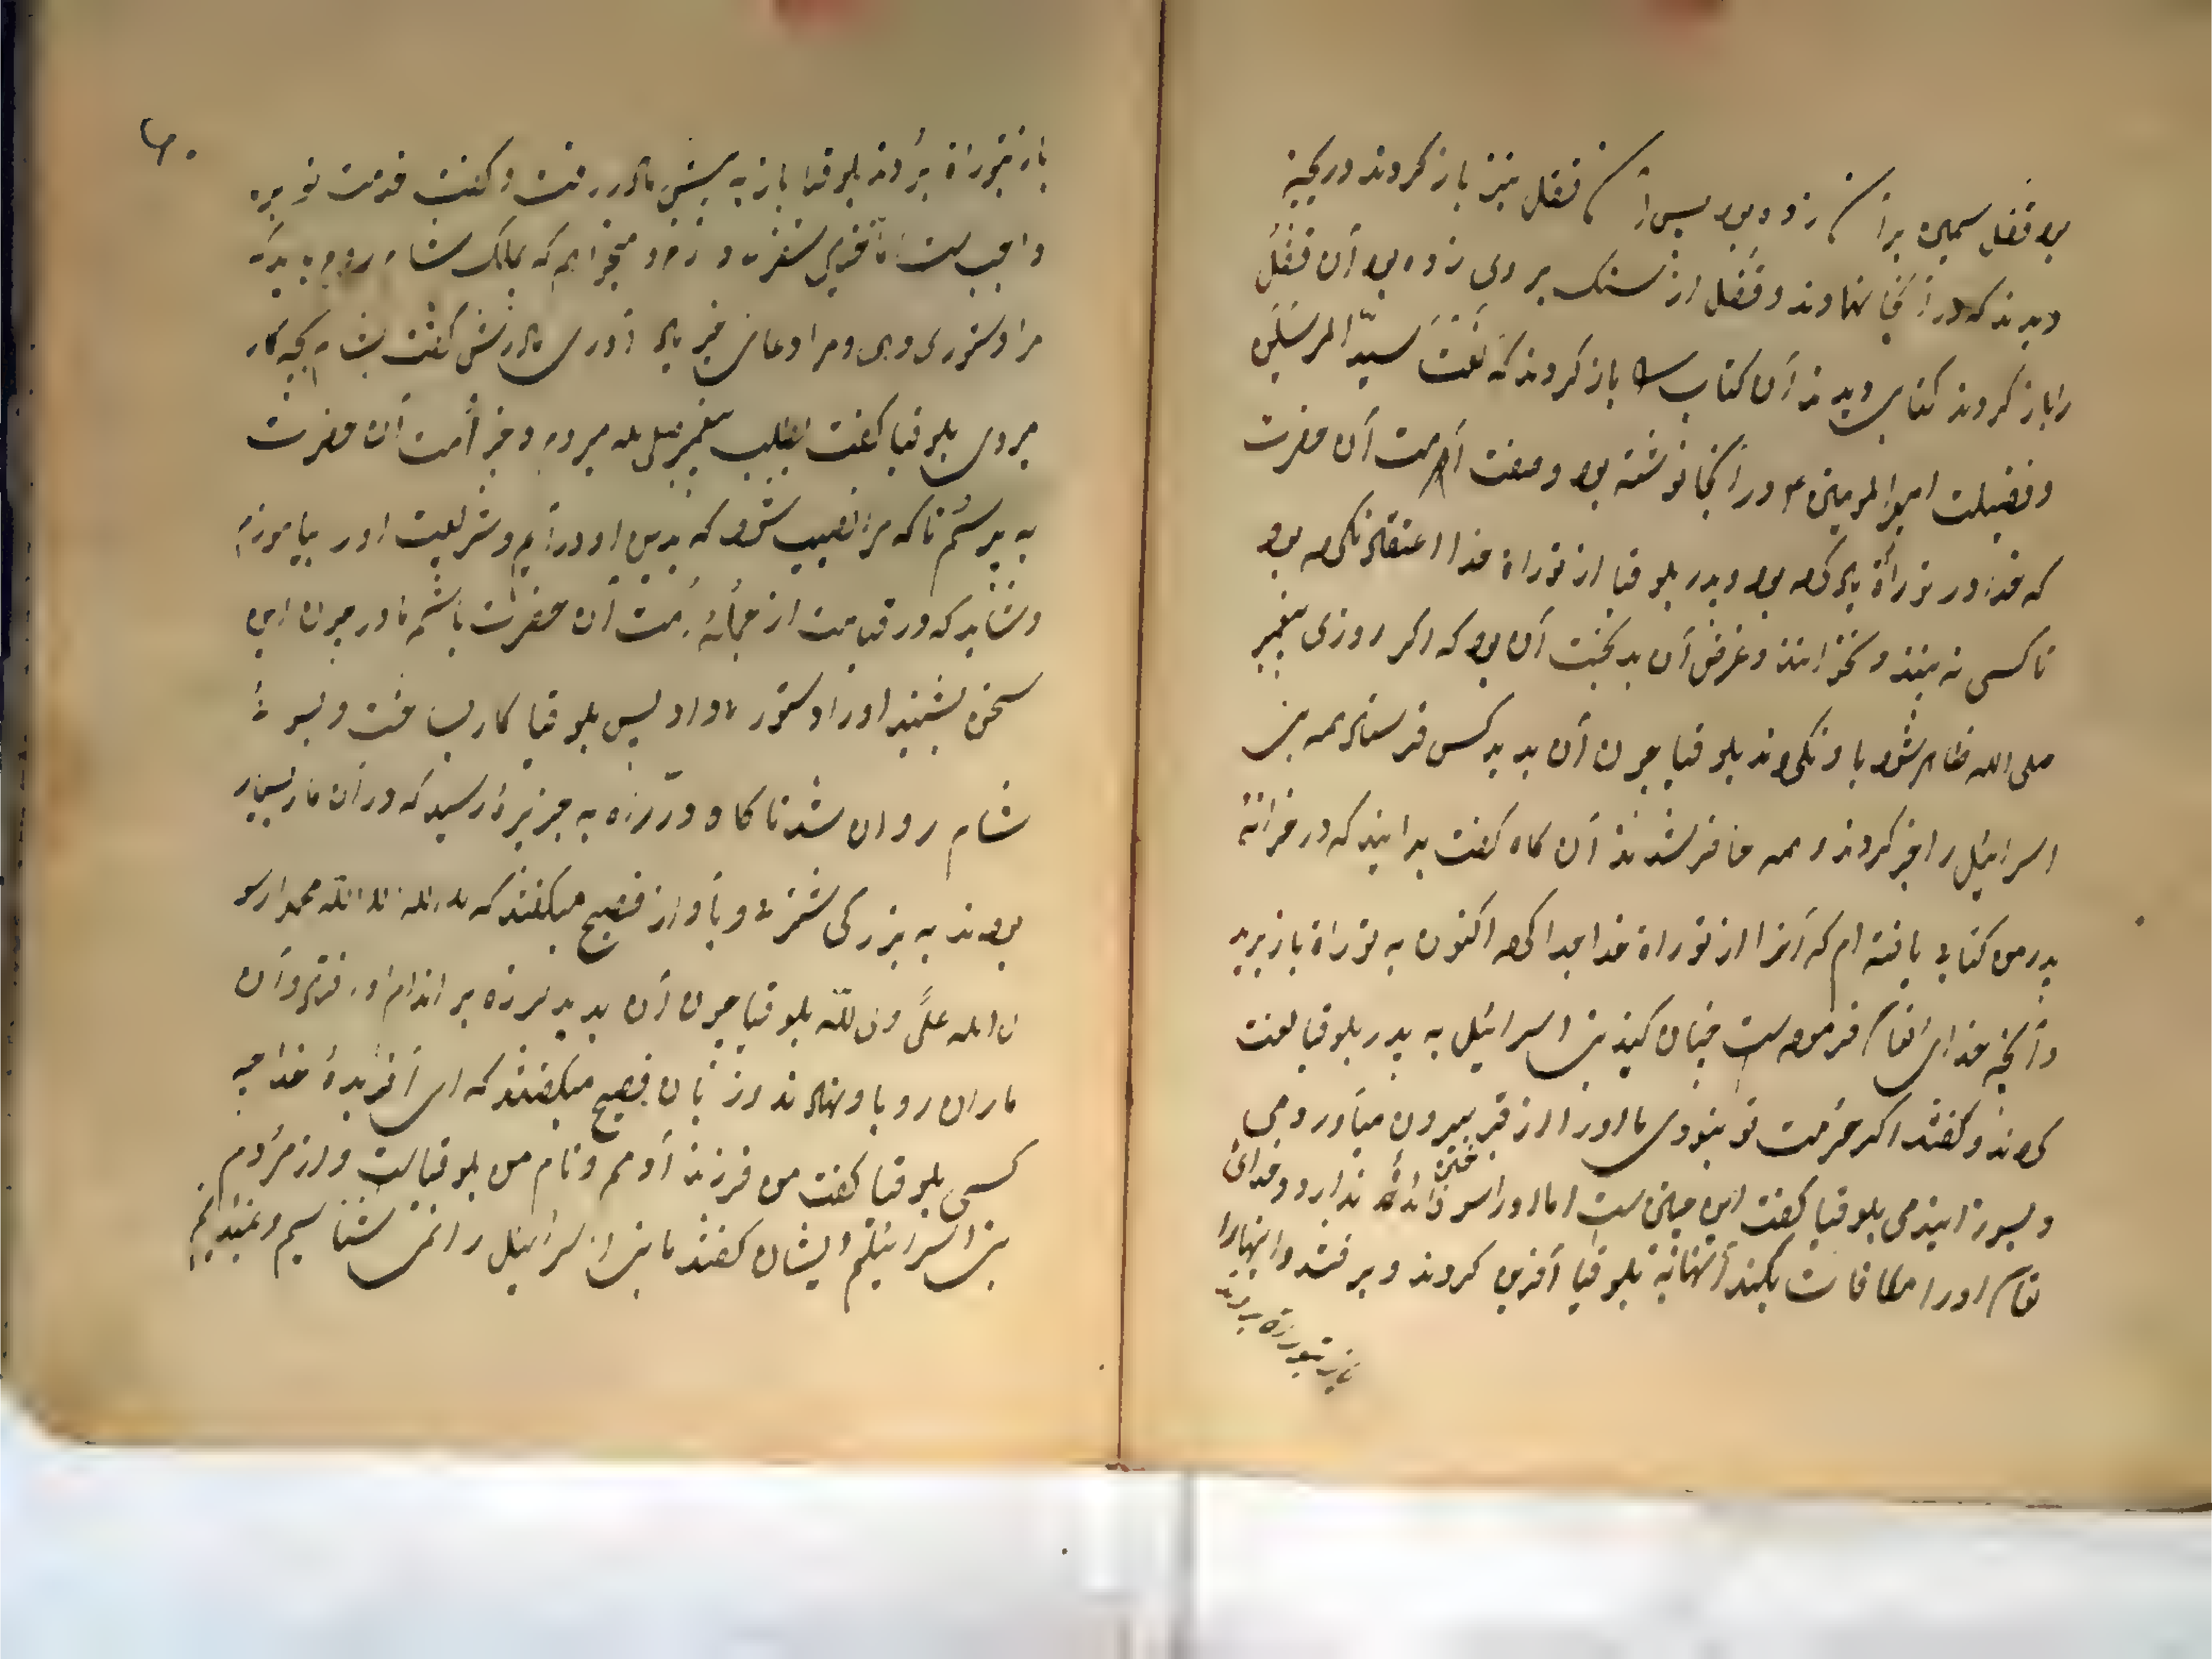 بود قفل سیمین بر آن زده بود پس آن قفل نیز باز کردند در کنجینه
دیدند که در آنجا نهادند و قفل از سنک بر وی زده بود آن قفل
را باز کردند کتابی دیدند آن کتاب را باز کردند که نعت سیّد المرسلین
و فضیلت امیرالمومنین در آنجا نوشته بود و صفت امت آن حضرت
که خدا در توراة یاد کرده بود و پدر بلوقیا از توراة جدا کرده بود
تا کسی نه بیند و نخوانند و غرض آن بدبخت آن بود که اکر روزی پیغمبر
صلی الله ظاهر شود باو نکروند بلوقیا چون آن بدید کس فرستاد همه بنی
اسرائیل را خبر کردند و همه حاضر شدند آن کاه کفت بدانید که در خزانهٔ
پدر من کتابی یافته ام که آنرا از توراة جدا کرده اکنون به توراة باز برید
و آنچه خدای تعالی فرموده است چنان کنید بنی اسرائیل به پدر بلوقیا لعنت
کردند و کفتند اکر حرمت تو نبودی ما او را از قبر بیرون میآوردمی
و میسوزانیدمی بلوقیا کفت این چنین است اما او را سوختن فائده ندارد و خدای
تعالی او را مکافات بکند آنها به بلوقیا آفرین کردند و برفتند و اینها را
باز بتوراة بردند
۲۰
باز بتوراة بردند بلوقیا باز به پیش مادر رفت و کفت خدمت تو بر من
واجب است اما قدری سفر دارم و میخواهم که بملک شام روم باید که
مرا دستوری دهی و مرا دعای خیر یاد آوری مادرش کفت بشام بچه کار
میروی بلوقیا کفت بطلب پیغمبر صلی الله میروم و خبر امت آن حضرت
به پرسم تا که مرا نصیب شود که بدین او درآیم و شریعت او را بیاموزم
و شاید که در قیامت از جملهٔ امت آن حضرت باشم مادر چون این
سخن بشنید او را دستوری داد پس بلوقیا کار بساخت و بسوی
شام روان شد تا کاه در راه به جزیرهٔ رسید که در آن مار بسیار
بودند به بزرکی شتر و باواز فصیح میکفتند که لا اله الا الله محمدا رسو
ل الله علی ولی الله بلوقیا چون آن بدید لرزه بر اندام او افتاد و آن
ماران رو باو نهادند و از زبان فصیح میکفتند که ای آفریدهٔ خدا چه
کسی بلوقیا کفت من فرزند آدمم و نام من بلوقیاست و از مردم
بنی اسرائیلم ایشان کفتند ما بنی اسرائیل را نمی شناسیم و نمیدانیم